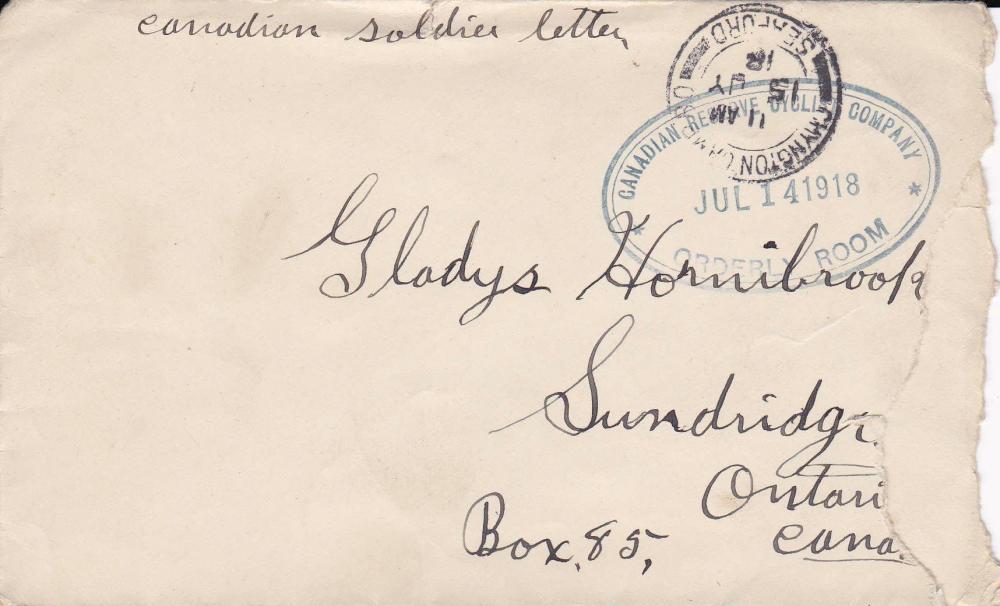 Canadian soldier letter
CHYNGTON CAMP
SEAFORD
11 AM
15 JY
18
CANADIAN RESERVE CYCLIST COMPANY
JUL 14 1918
ORDERLY ROOM
Gladys Hornibrook
Sundridg
Ontari
Box, 85, Cana